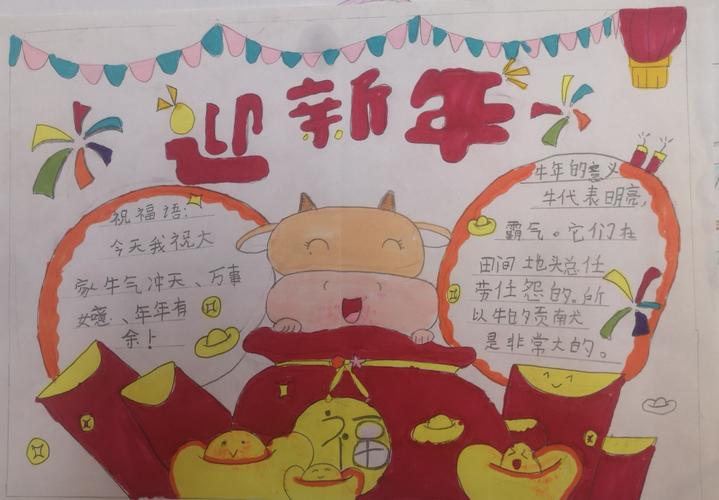 迎新年
祝福语:
今天我祝大
家牛气冲天、万事
如意、年年有
余!
牛年的意义
牛代表明亮,
霸气。它们在
田间地头总任
劳任怨的。所
以牛的贡献
是非常大的。
福